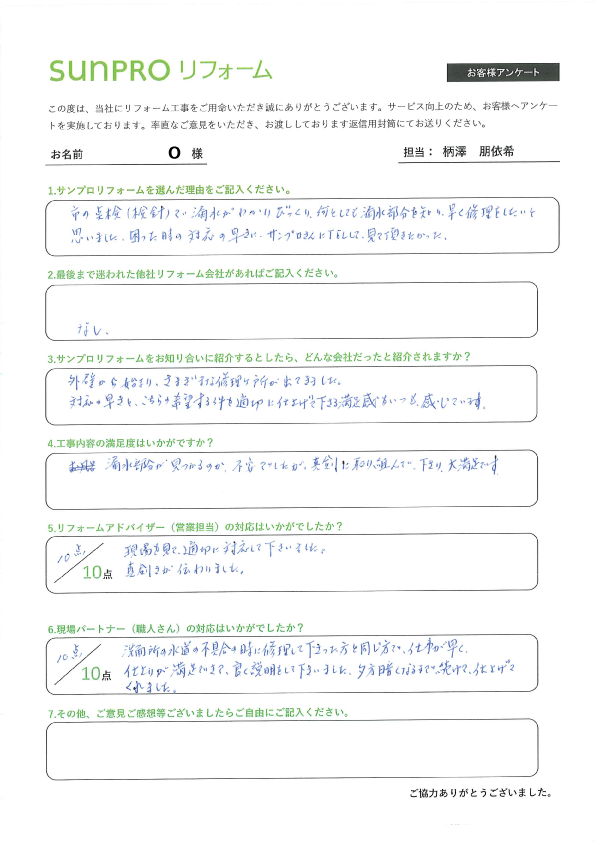 sunpro リフォーム
お客様アンケート
この度は、当社にリフォーム工事をご用命いただき誠にありがとうございます。サービス向上のため、お客様へアンケー
トを実施しております。率直なご意見をいただき、お渡ししております返信用封筒にてお送りください。
お名前 O 様
担当： 柄澤 朋依希
1.サンプロリフォームを選んだ理由をご記入ください。
市の点検(検針)で漏水がわかりびっくり、何としても漏水部分を知り、早く修理をしたいと
思いました。困った時の対応の早さに、サンプロさんにTELして、見て頂きたかった。
2.最後まで迷われた他社リフォーム会社があればご記入ください。
なし。
3.サンプロリフォームをお知り合いに紹介するとしたら、どんな会社だったと紹介されますか？
外壁から始まり、さまざまな修理ケ所が出てきました。
対応の早さと、こちらの希望する件を適切に仕上げて下さる満足感をいつも、感じています。
4.工事内容の満足度はいかがですか？
漏水部分が見つかるのか、不安でしたが、真剣に取り組んで、下さり、大満足です
5.リフォームアドバイザー（営業担当）の対応はいかがでしたか？
10点/10点
現場を見て、適切に対応して下さいました。
真剣さが伝わりました。
6.現場パートナー（職人さん）の対応はいかがでしたか？
10点/10点
洗面所の水道の不具合の時に修理して下さった方と同じ方で、仕事が早く、
仕上りが満足できて、良く説明をして下さいました、夕方暗くなるまで、続けて、仕上げて
くれました。
7.その他、ご意見ご感想等ございましたらご自由にご記入ください。
ご協力ありがとうございました。